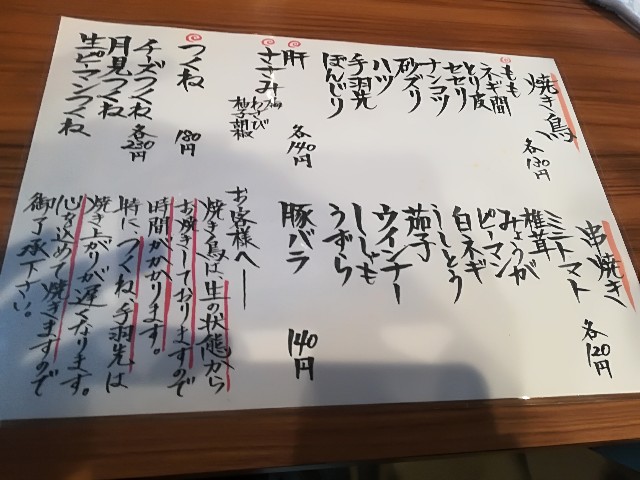 焼き鳥
各130円
もも
ネギ間
とり皮
セセリ
ナンコツ
砂ズリ
ハツ
手羽先
ぼんじり
肝
各140円
ささみ
梅
わさび
柚子胡椒
つくね
180円
チーズつくね
月見つくね
各230円
生ピーマンつくね
串焼き
各120円
ミニトマト
椎茸
みょうが
ピーマン
白ネギ
ししとう
茄子
ウインナー
ししゃも
うずら
豚バラ
140円
お客様へ
焼き鳥は、生の状態から
お焼きしておりますので
時間がかかります。
特に、つくね、手羽先は
焼き上がりが遅くなります。
心を込めて焼きますので
御了承下さい。